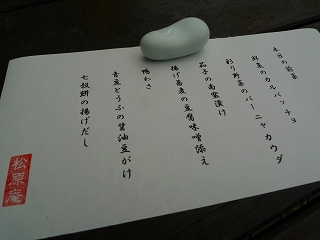 本日の前菜
鮮魚のカルパッチョ
彩り野菜のバーニャカウダ
茄子の南蛮漬け
揚げ蕎麦の豆腐味噌添え
鴨わさ
青豆とうふの醤油豆がけ
七穀餅の揚げだし
松原庵